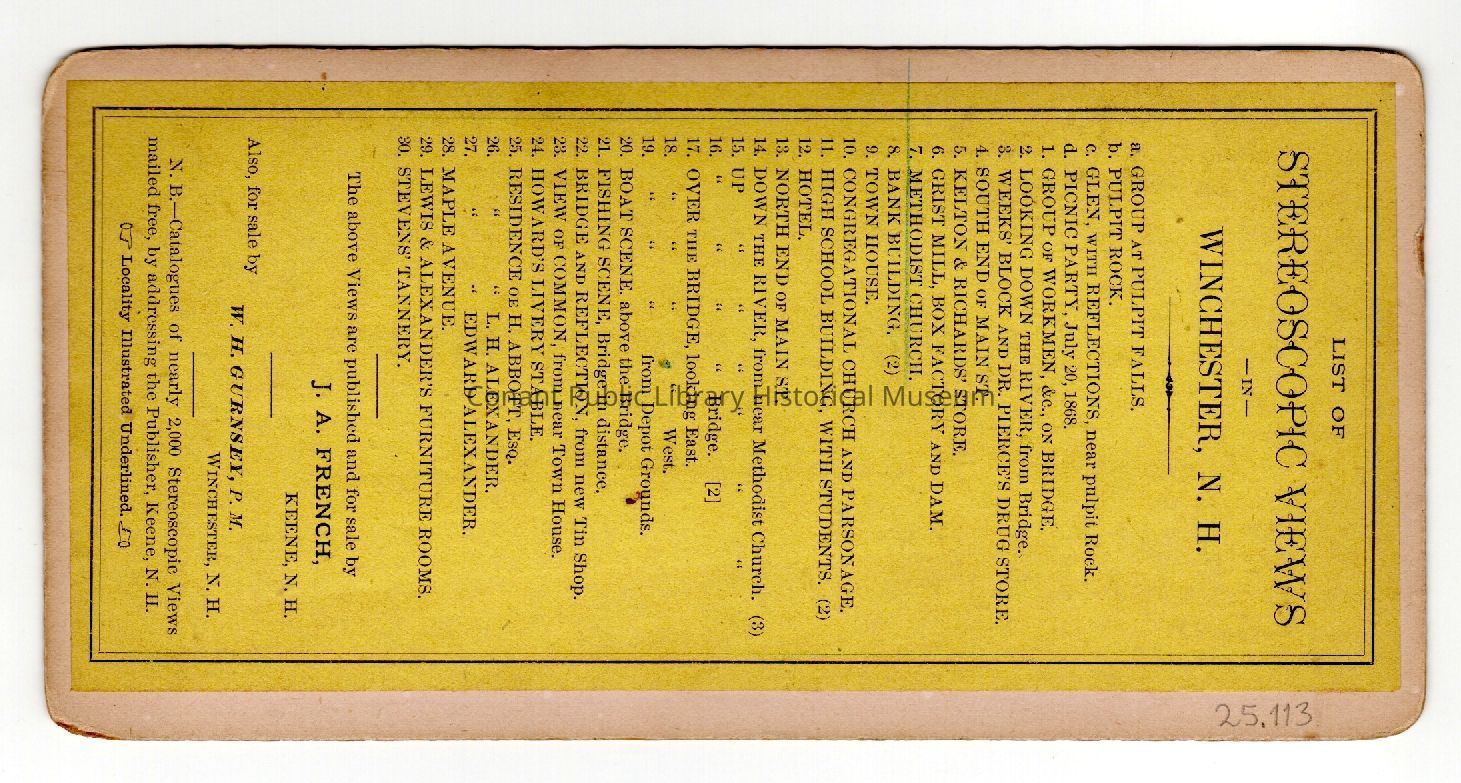 LIST OF
STEREOSCOPIC VIEWS
—IN—
WINCHESTER, N. H.
a. GROUP AT PULPIT FALLS.
b. PULPIT ROCK.
c. GLEN, WITH REFLECTIONS, near pulpit Rock.
d. PICNIC PARTY, July 20, 1868.
1. GROUP OF WORKMEN, &c., ON BRIDGE.
2. LOOKING DOWN THE RIVER, from Bridge.
3. WEEKS' BLOCK AND DR. PIERCE'S DRUG STORE.
4. SOUTH END OF MAIN ST.
5. KELTON & RICHARDS' STORE.
6. GRIST MILL, BOX FACTORY AND DAM.
7. METHODIST CHURCH.
8. BANK BUILDING. (2)
9. TOWN HOUSE.
10. CONGREGATIONAL CHURCH AND PARSONAGE.
11. HIGH SCHOOL BUILDING, WITH STUDENTS. (2)
12. HOTEL.
13. NORTH END OF MAIN ST.
14. DOWN THE RIVER, from near Methodist Church. (3)
15. UP " " " " " " "
16. " " " " Bridge. [2]
17. OVER THE BRIDGE, looking East.
18. " " " " West.
19. " " " from Depot Grounds.
20. BOAT SCENE, above the Bridge.
21. FISHING SCENE, Bridge in distance.
22. BRIDGE AND REFLECTION, from new Tin Shop.
23. VIEW OF COMMON, from near Town House.
24. HOWARD'S LIVERY STABLE.
25. RESIDENCE OF H. ABBOTT, Esq.
26. " " L. H. ALEXANDER.
27. " " EDWARD ALEXANDER.
28. MAPLE AVENUE.
29. LEWIS & ALEXANDER'S FURNITURE ROOMS.
30. STEVENS' TANNERY.
The above Views are published and for sale by
J. A. FRENCH,
KEENE, N. H.
Also, for sale by
W. H. GURNSEY, P. M.
WINCHESTER, N. H.
N. B.—Catalogues of nearly 2,000 Stereoscopic Views
mailed free, by addressing the Publisher, Keene, N. H.
☞ Locality Illustrated Underlined. ☜
25.113
Conant Public Library Historical Museum